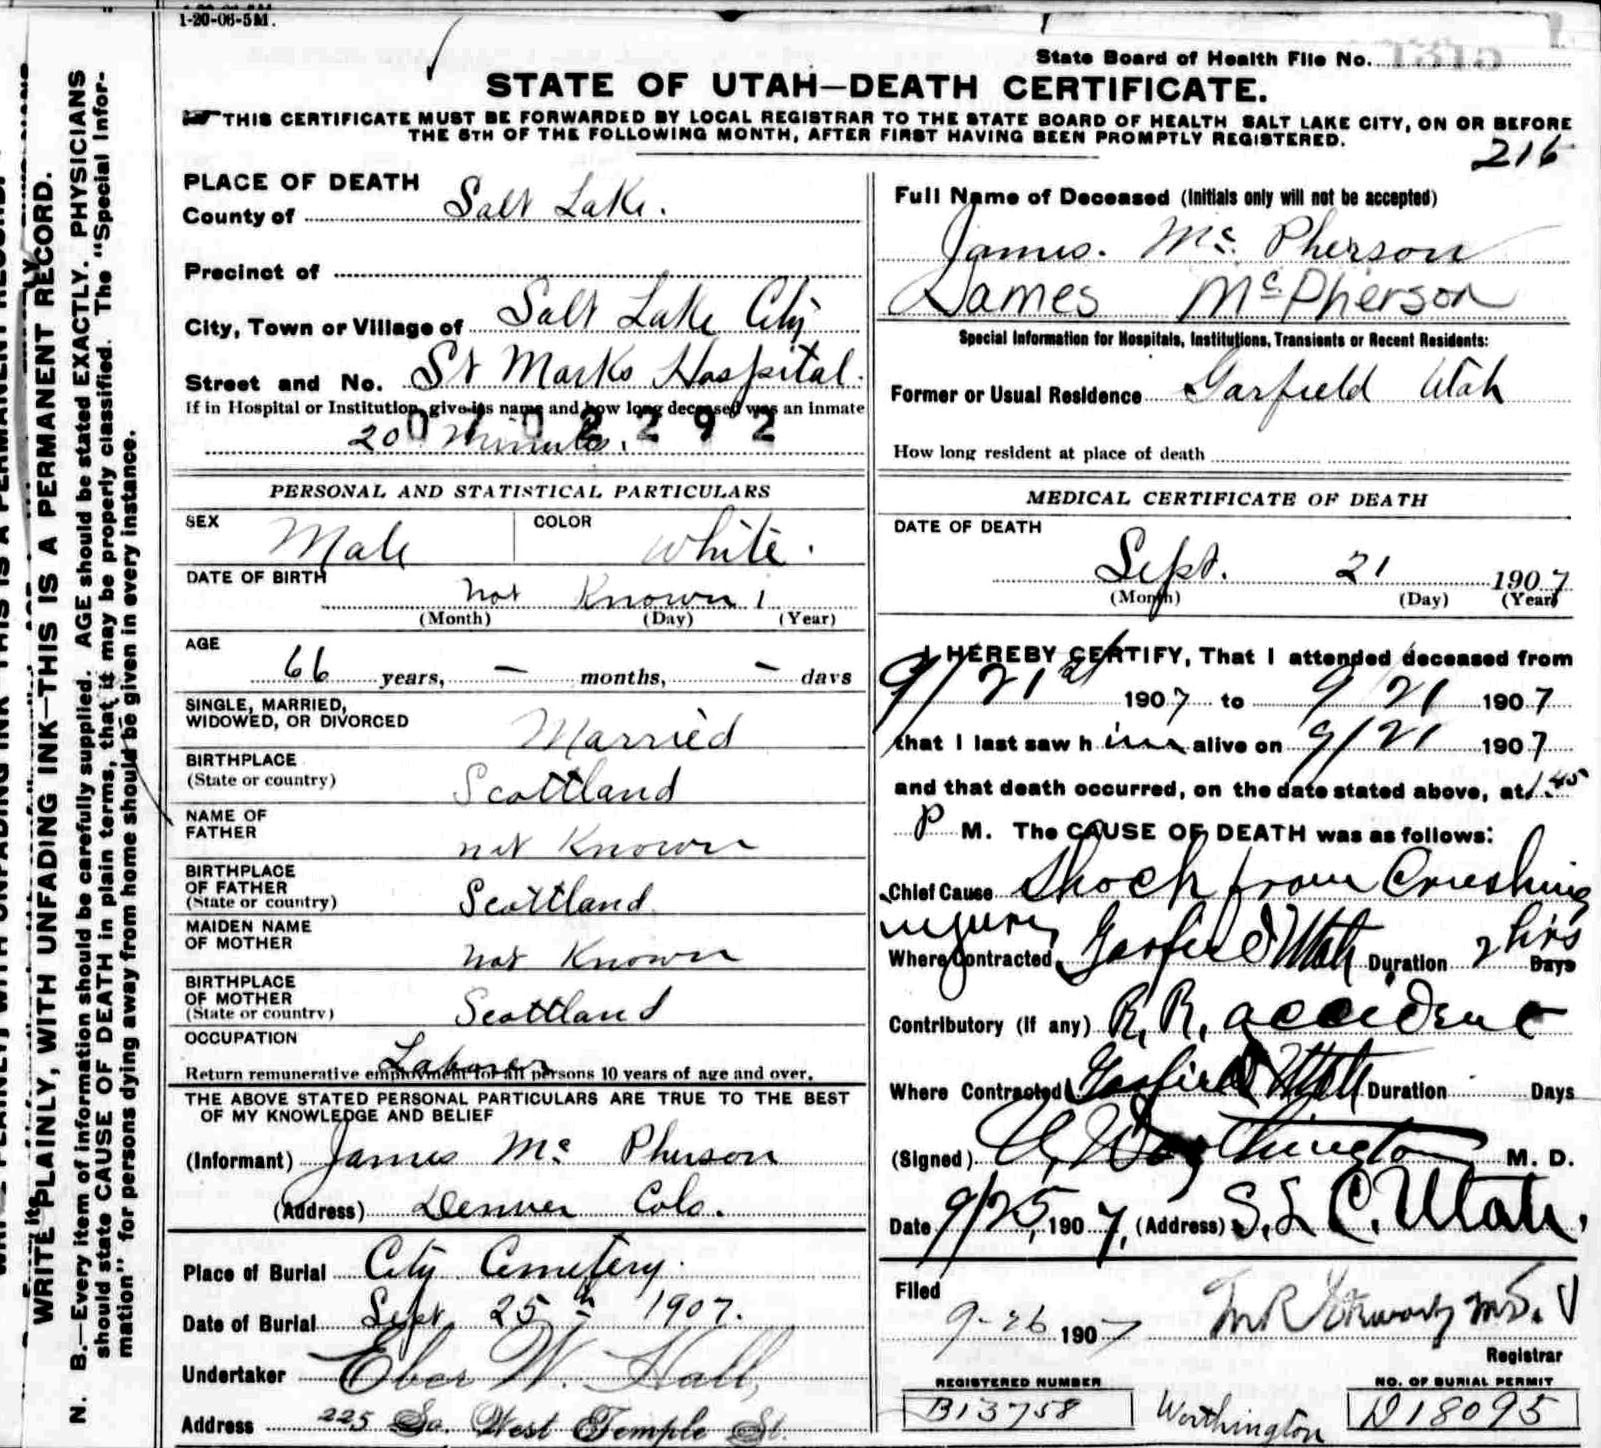 1-20-06-5M.
State Board of Health File No.
STATE OF UTAH—DEATH CERTIFICATE.
THIS CERTIFICATE MUST BE FORWARDED BY LOCAL REGISTRAR TO THE STATE BOARD OF HEALTH SALT LAKE CITY, ON OR BEFORE
THE 5TH OF THE FOLLOWING MONTH, AFTER FIRST HAVING BEEN PROMPTLY REGISTERED.
216
WRITE PLAINLY, WITH UNFADING INK—THIS IS A PERMANENT RECORD.
N. B.—Every item of information should be carefully supplied. AGE should be stated EXACTLY. PHYSICIANS
should state CAUSE OF DEATH in plain terms, that it may be properly classified. The "Special Infor-
mation" for persons dying away from home should be given in every instance.
PLACE OF DEATH
County of Salt Lake.
Precinct of
City, Town or Village of Salt Lake City
Street and No. St Marks Hospital.
If in Hospital or Institution, give its name and how long deceased was an inmate
20 Minutes.
0702292
PERSONAL AND STATISTICAL PARTICULARS
SEX Male COLOR White.
DATE OF BIRTH
not Known
(Month) (Day) (Year)
AGE
66 years, – months, – days
SINGLE, MARRIED,
WIDOWED, OR DIVORCED Married
BIRTHPLACE
(State or country) Scottland
NAME OF
FATHER not Known
BIRTHPLACE
OF FATHER
(State or country) Scottland
MAIDEN NAME
OF MOTHER not Known
BIRTHPLACE
OF MOTHER
(State or country) Scottland
OCCUPATION
Laborer
Return remunerative employment for all persons 10 years of age and over.
THE ABOVE STATED PERSONAL PARTICULARS ARE TRUE TO THE BEST
OF MY KNOWLEDGE AND BELIEF
(Informant) James Mc Pherson
(Address) Denver Colo.
Place of Burial City Cemetery.
Date of Burial Sept 25th 1907.
Undertaker Eber W. Hall,
Address 225 So. West Temple St.
Full Name of Deceased (Initials only will not be accepted)
James. Mc Pherson
James McPherson
Special Information for Hospitals, Institutions, Transients or Recent Residents:
Former or Usual Residence Garfield Utah
How long resident at place of death
MEDICAL CERTIFICATE OF DEATH
DATE OF DEATH
Sept. 21 1907
(Month) (Day) (Year)
I HEREBY CERTIFY, That I attended deceased from
9/21st 1907 to 9 21 1907
that I last saw him alive on 9/21 1907
and that death occurred, on the date stated above, at 1.45
P M. The CAUSE OF DEATH was as follows:
Chief Cause Shock from Crushing
injury
Where Contracted Garfield Utah Duration 2 hrs Days
Contributory (if any) R. R. accident
Where Contracted Garfield Utah Duration Days
(Signed) Worthington M. D.
Date 9/25, 1907, (Address) S. L. C. Utah.
Filed
9-26 1907
Registrar
REGISTERED NUMBER
B13758
Worthington
NO. OF BURIAL PERMIT
D18095